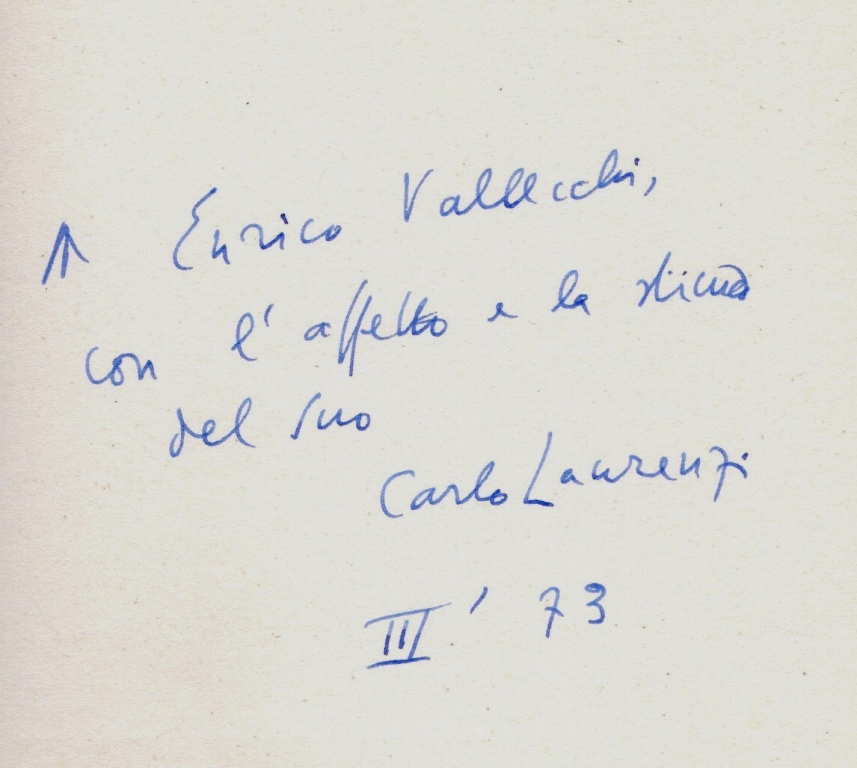 A Enrico Vallecchi,
con l'affetto e la stima
del suo
Carlo Laurenzi
III '73